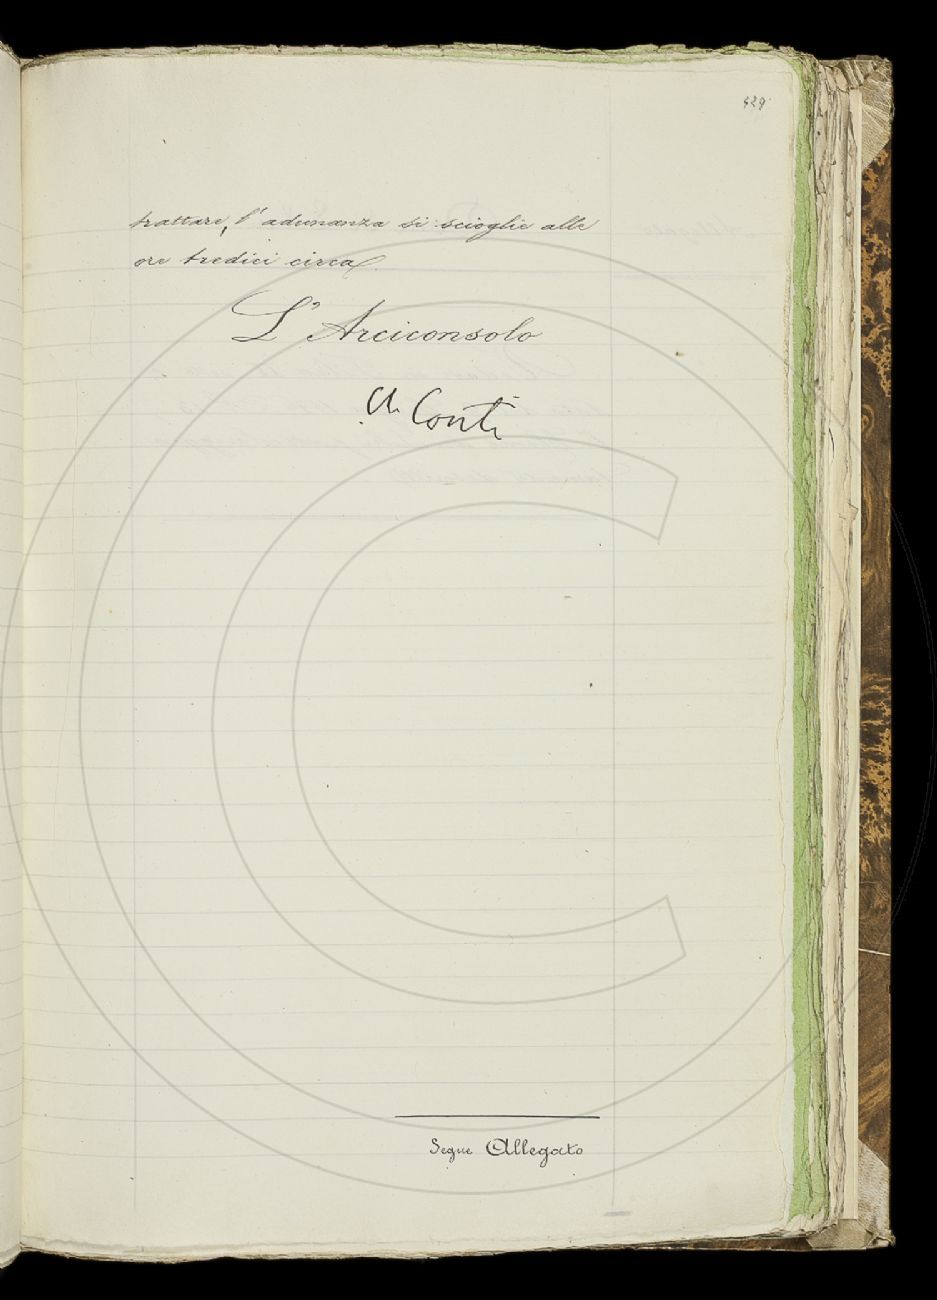 429
trattare, l'adunanza si scioglie alle
ore tredici circa.
L'Arciconsolo
A. Conti
Segue Allegato